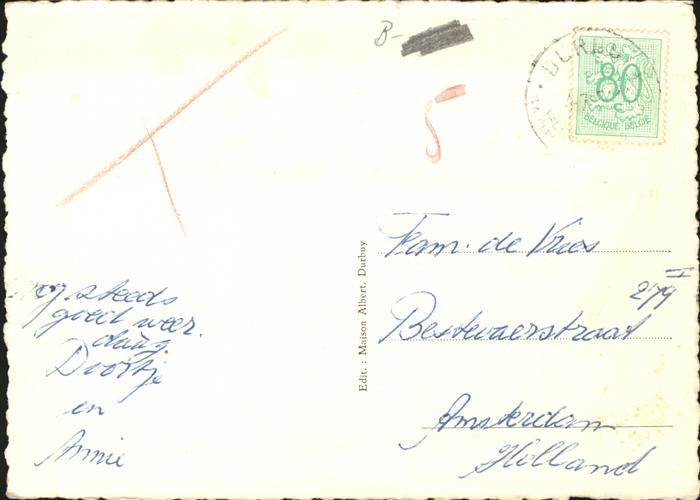 B-
5
DURBUY
80
BELGIQUE-BELGIË
Edit. : Maison Albert, Durbuy
nog steeds
goed weer.
daag
Doortje
en
Annie
Fam. de Vries
279 II
Bestevaerstraat
Amsterdam
Holland